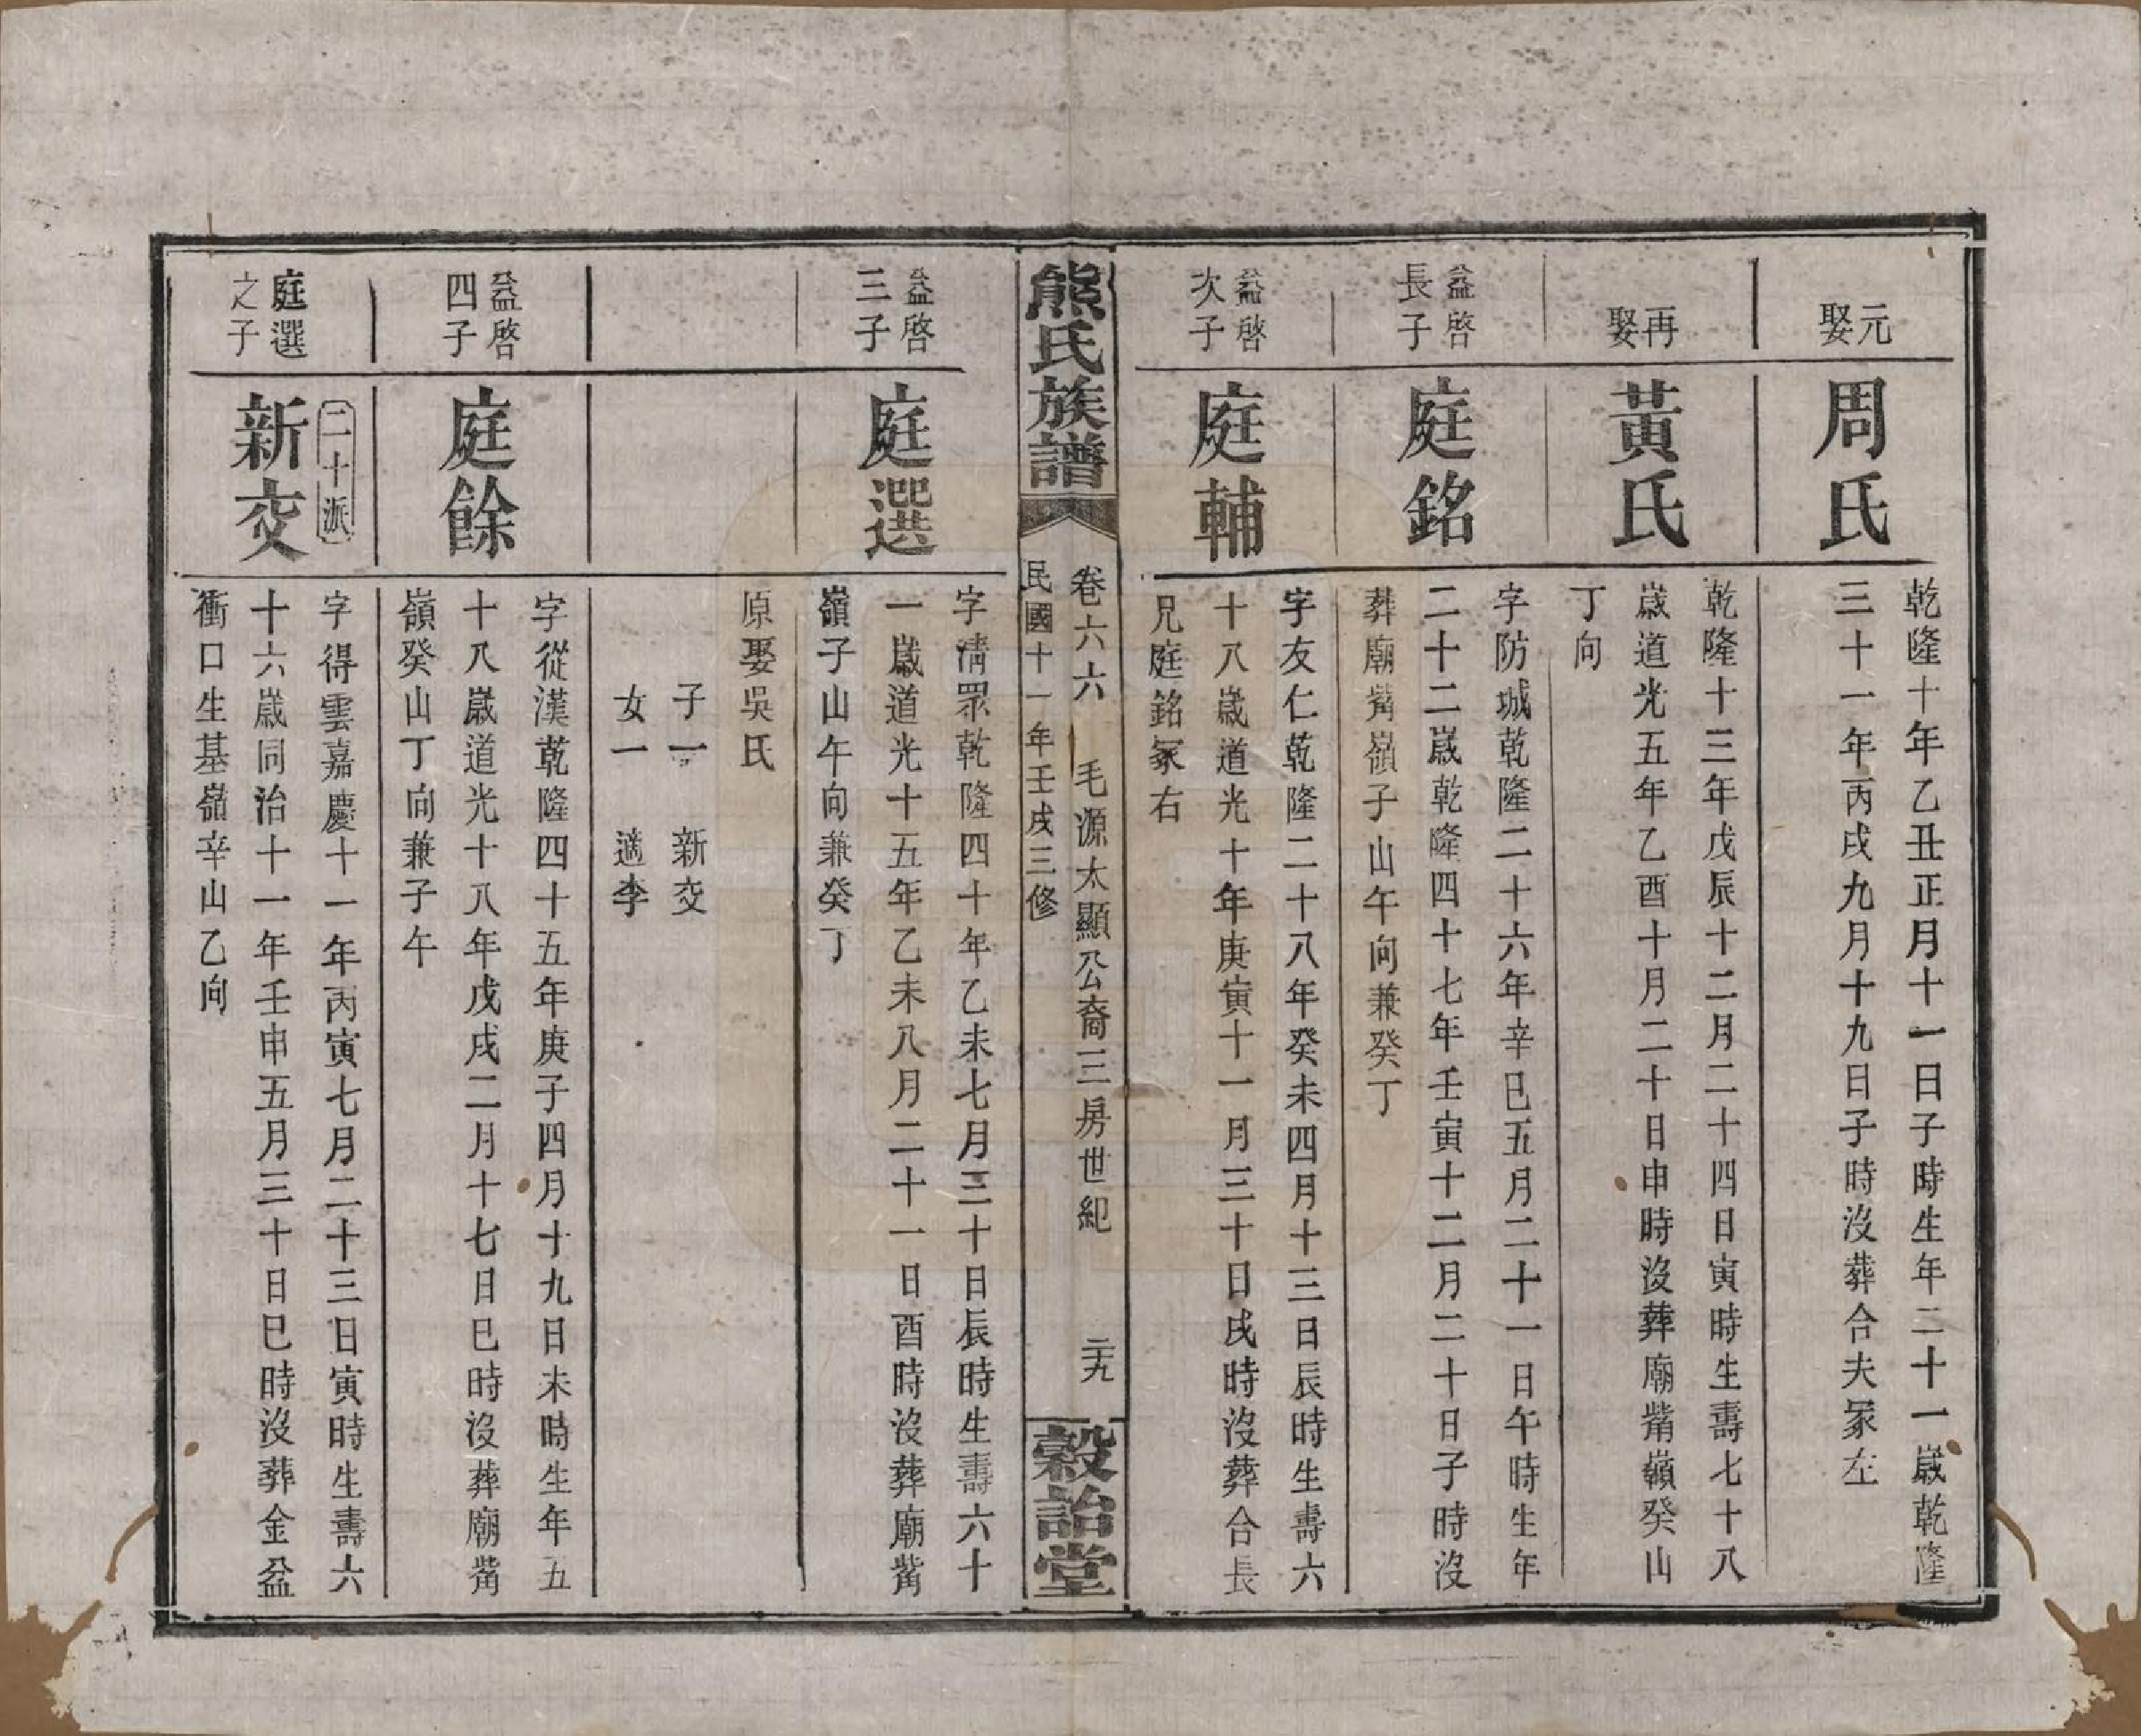 元娶
周氏
乾隆十年乙丑正月十一日子時生年二十一歲乾隆
三十一年丙戌九月十九日子時沒葬合夫冢左
再娶
黃氏
乾隆十三年戊辰十二月二十四日寅時生壽七十八
歲道光五年乙酉十月二十日申時沒葬廟觜嶺癸山
丁向
益啓
長子
庭銘
字防城乾隆二十六年辛巳五月二十一日午時生年
二十二歲乾隆四十七年壬寅十二月二十日子時沒
葬廟觜嶺子山午向兼癸丁
益啓
次子
庭輔
字友仁乾隆二十八年癸未四月十三日辰時生壽六
十八歲道光十年庚寅十一月三十日戌時沒葬合長
兄庭銘冢右
熊氏族譜
卷六六 毛源太顯公裔三房世紀 二十九
民國十一年壬戌三修
穀詒堂
益啓
三子
庭選
字清眾乾隆四十年乙未七月三十日辰時生壽六十
一歲道光十五年乙未八月二十一日酉時沒葬廟觜
嶺子山午向兼癸丁
原娶吳氏
子一 新交
女一 適李
益啓
四子
庭餘
字從漢乾隆四十五年庚子四月十九日未時生年五
十八歲道光十八年戊戌二月十七日巳時沒葬廟觜
嶺癸山丁向兼子午
庭選
之子
二十派
新交
字得雲嘉慶十一年丙寅七月二十三日寅時生壽六
十六歲同治十一年壬申五月三十日巳時沒葬金盆
衝口生基嶺辛山乙向